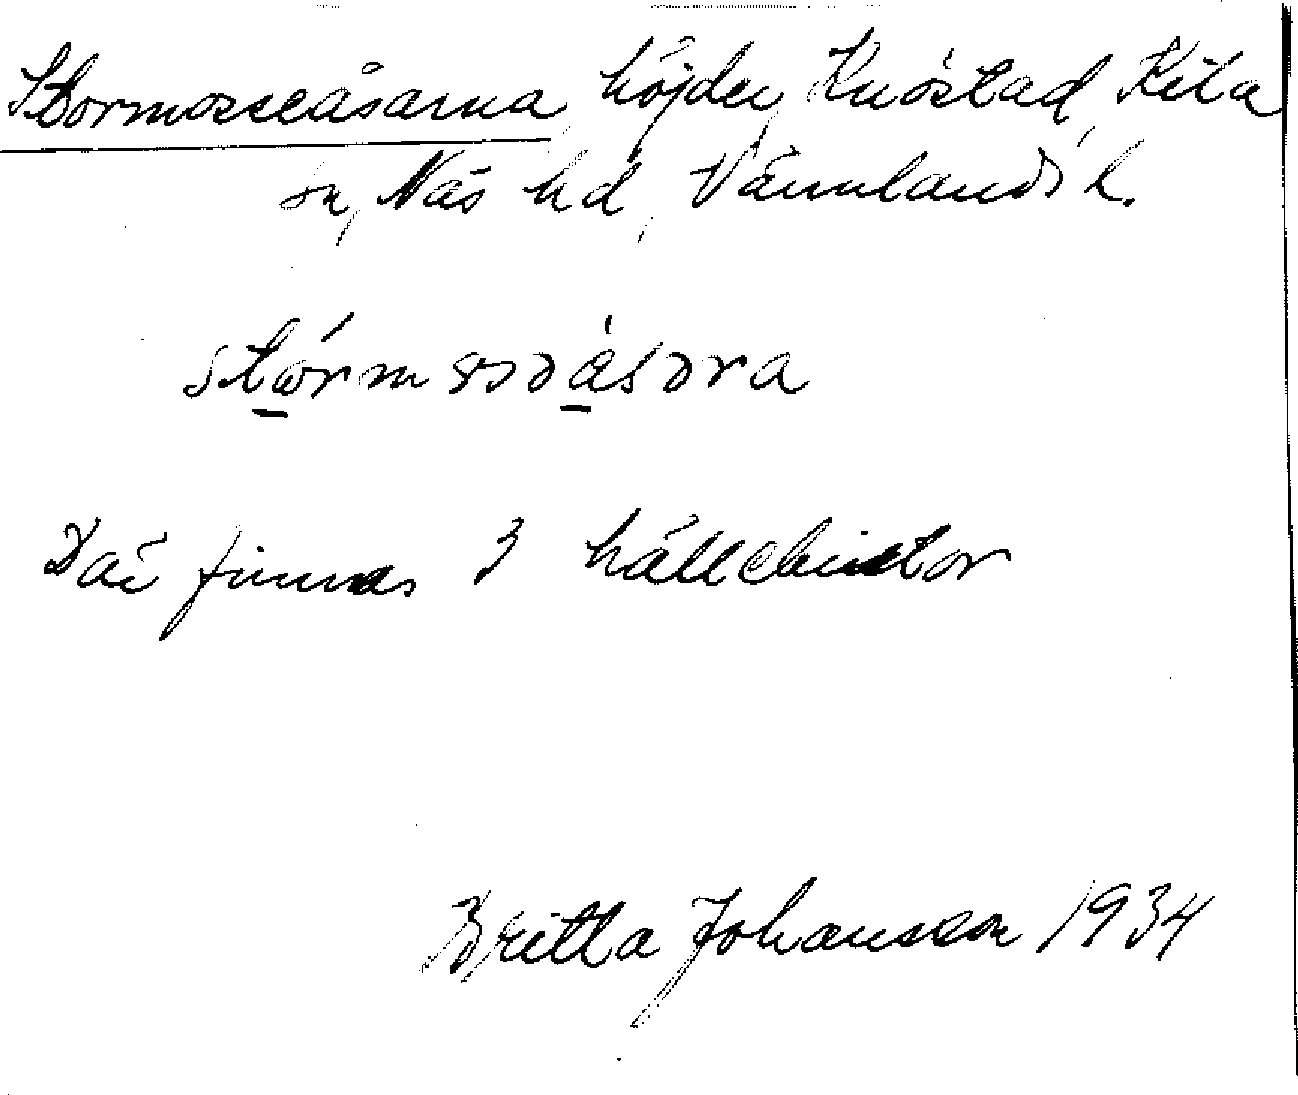 Stormosseåsarna, höjder, Knöstad, Kila
sn, Näs hd, Värmlands l.
stormossåsəra
Där finnas 3 hällekistor
Britta Johansson 1934